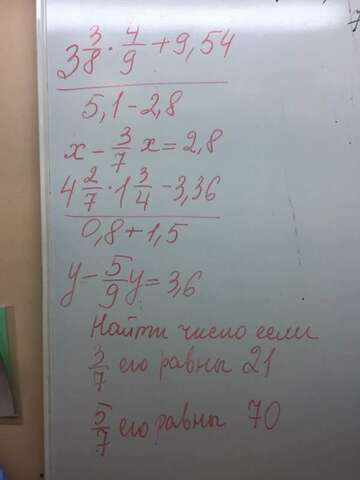 3 3/8 · 4/9 + 9,54
5,1 - 2,8
x - 3/7 x = 2,8
4 2/7 · 1 3/4 - 3,36
0,8 + 1,5
y - 5/9 y = 3,6
Найти число если
3/7 его равны 21
5/7 его равны 70